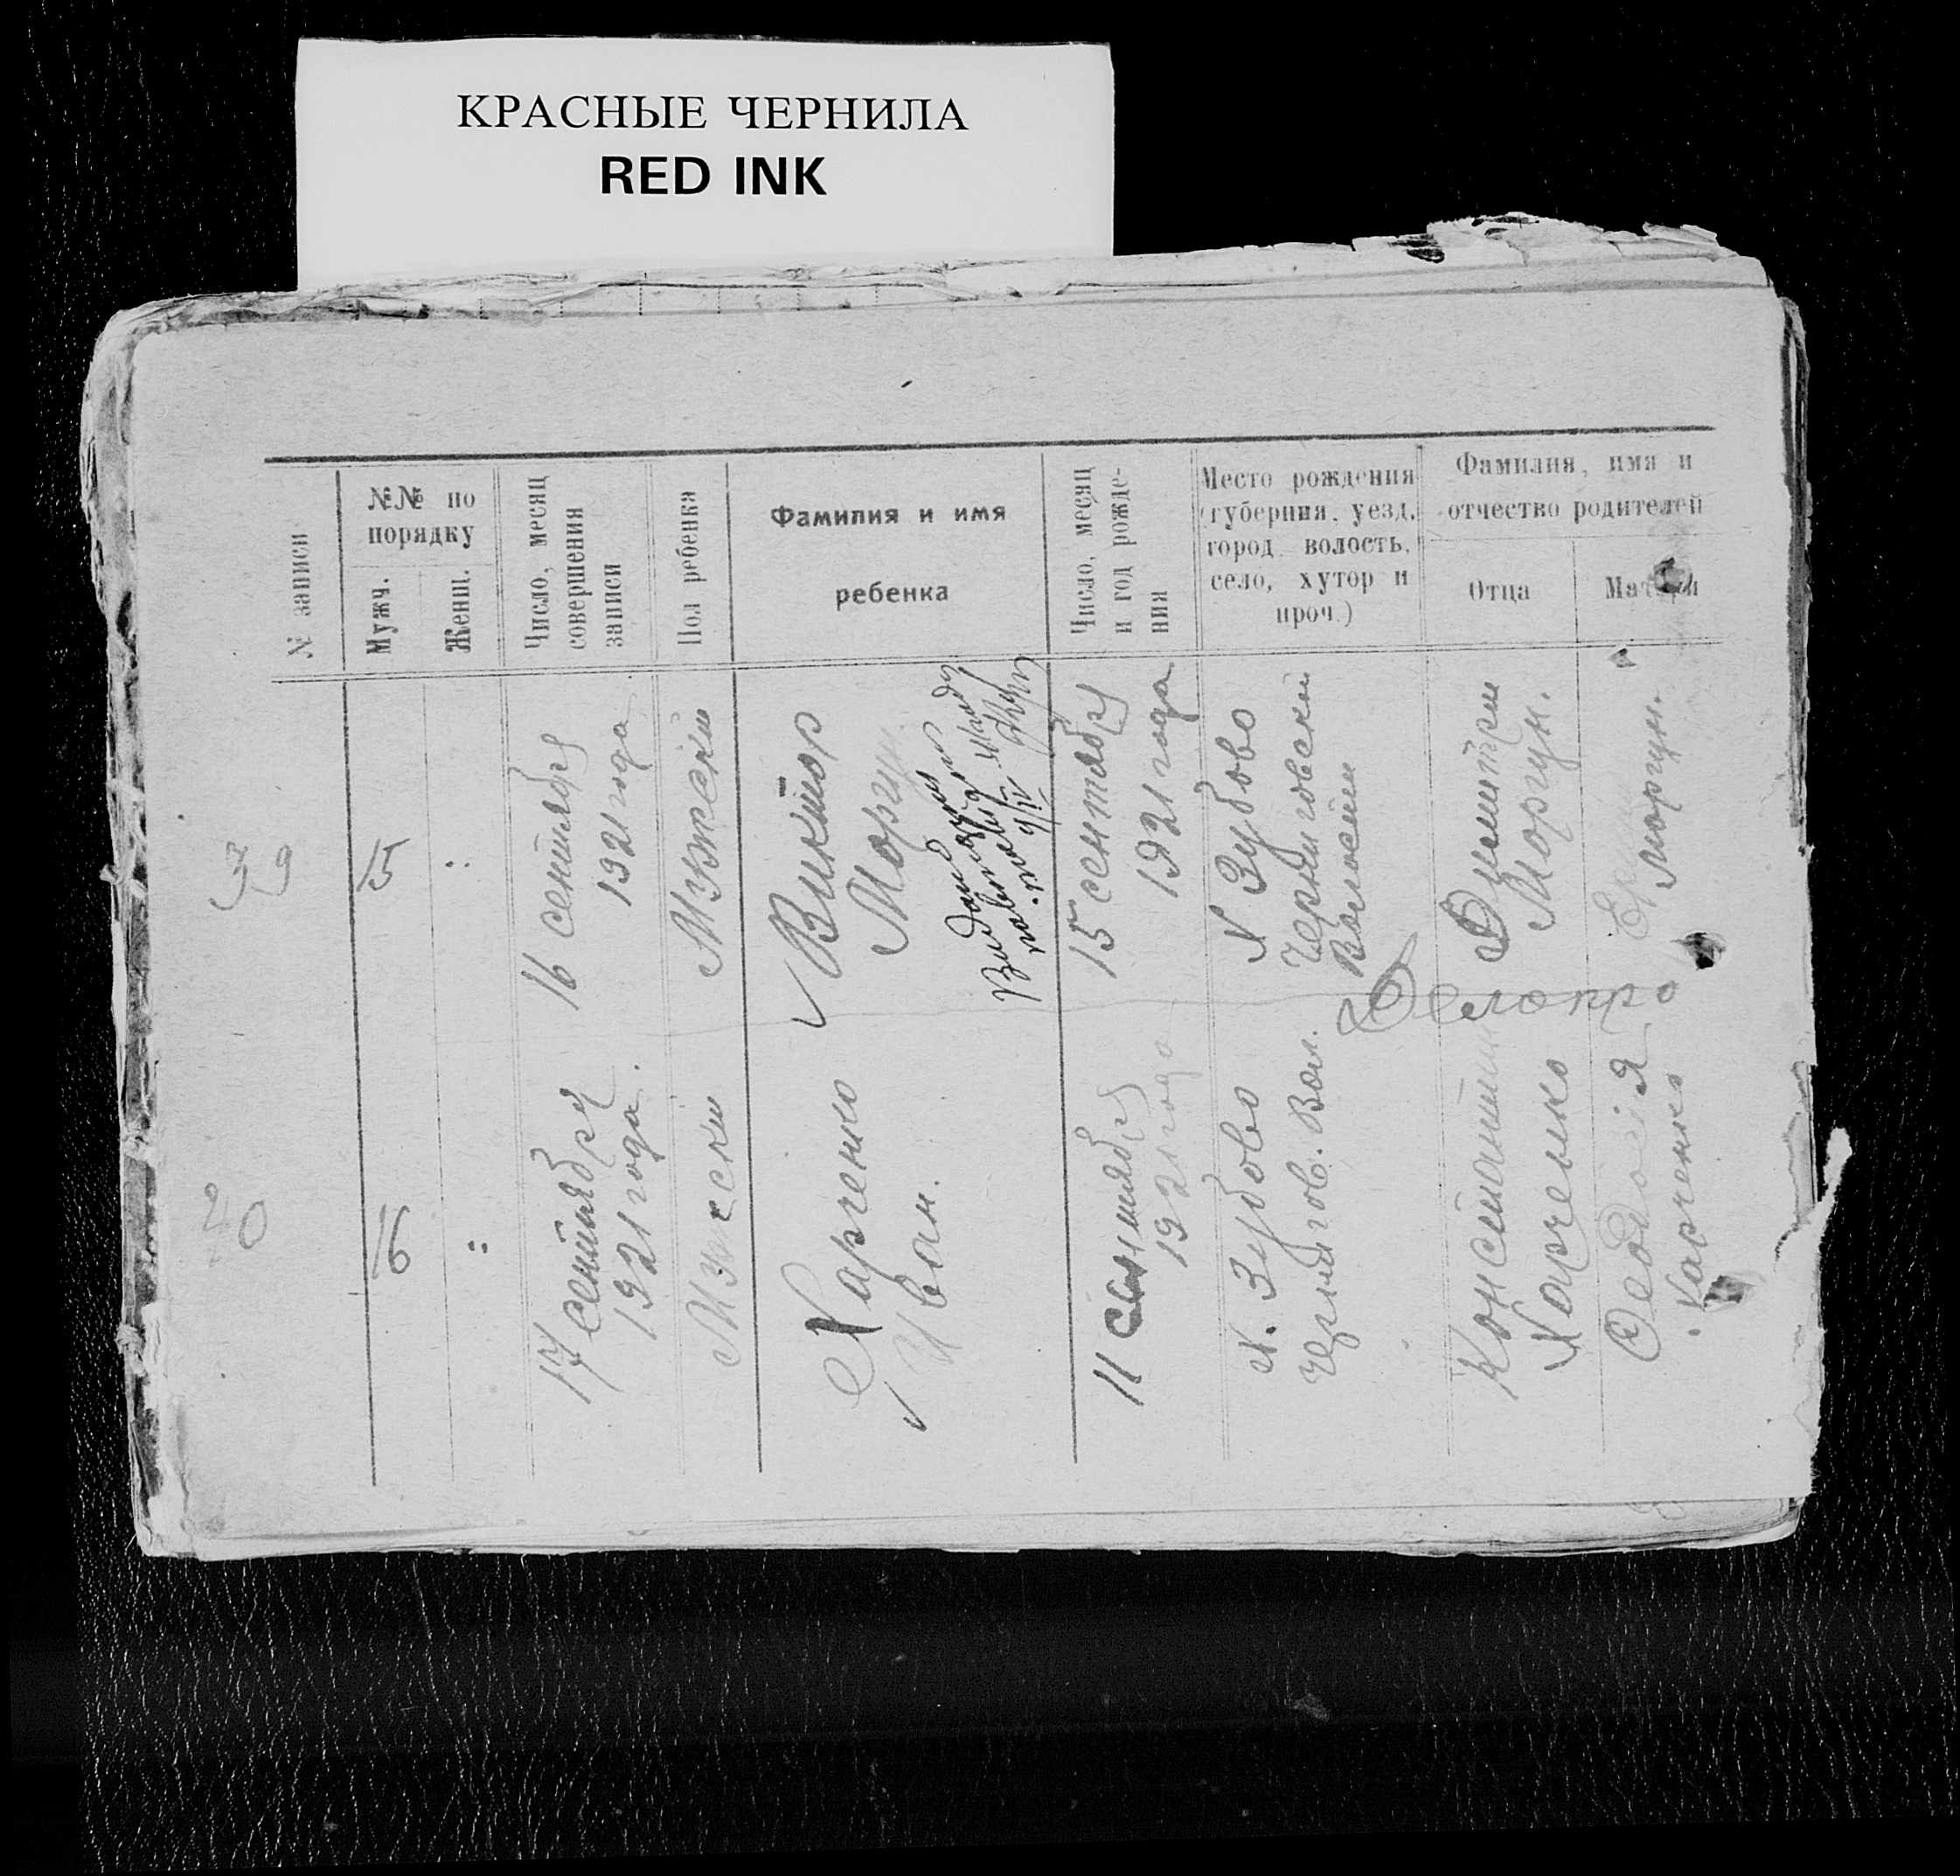 КРАСНЫЕ ЧЕРНИЛА
RED INK
№ записи
№№ по
порядку
Мужч.
Женщ.
Число, месяц
совершения
записи
Пол ребенка
Фамилия и имя
ребенка
Число, месяц
и год рожде-
ния
Место рождения
(губерния, уезд,
город, волость,
село, хутор и
проч.)
Фамилия, имя и
отчество родителей
Отца
Матери
39
15
16 сентября
1921 года
Мужски
Виктор
Моргун
15 сентября
1921 года
Х Зубово
Черниговски
Волости
Дмитри
Моргун.
Моргун.
Делопро
40
16
17 сентября
1921 года.
Мужески
Харченко
Иван.
11 сентября
1921 года
Х. Зубово
Чернигов. Вол.
Константин
Харченко
Федосия
Харченко